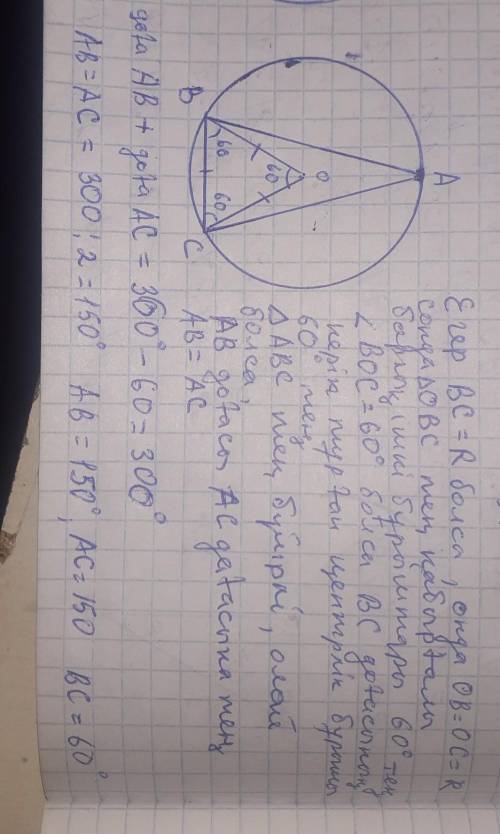 B
C
O
A
60
60
60
Егер BC = R болса, онда OB=OC=R
сонда △OBC тең қабырғалы
барлық ішкі бұрыштары 60° тең
∠ BOC = 60° болса BC доғасының
керіп тұрған центрлік бұрышы
60° тең
△ ABC тең бүйірлі, олай
болса,
AB доғасы AC доғасына тең
AB = AC
доға AB + доға AC = 360° - 60 = 300°
AB = AC = 300 : 2 = 150° AB = 150°, AC = 150 BC = 60°